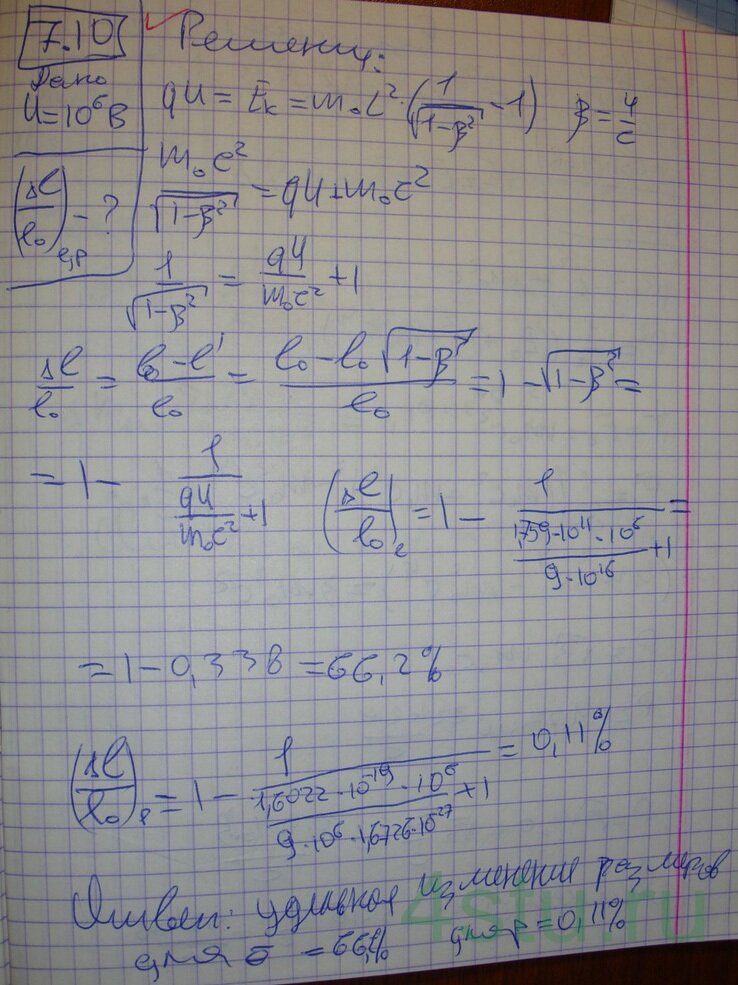 7.10 Решение:
Дано
U=10⁶В
(Δl/l₀)e,p - ?
qU = Eк = m₀c²·(1/√(1-β²) - 1) β = υ/c
m₀c²/√(1-β²) = qU+m₀c²
1/√(1-β²) = qU/m₀c² + 1
Δl/l₀ = (l₀-l')/l₀ = (l₀-l₀√(1-β²))/l₀ = 1-√(1-β²) =
= 1 - 1/(qU/m₀c² + 1) (Δl/l₀)e = 1 - 1/(1,759·10¹¹·10⁶/9·10¹⁶ + 1) =
= 1-0,338 = 66,2%
(Δl/l₀)p = 1 - 1/(1,6022·10⁻¹⁹·10⁶/9·10⁶·1,6726·10⁻²⁷ + 1) = 0,11%
Ответ: удельное изменение размеров
для e = 66% для p = 0,11%
4stu.ru